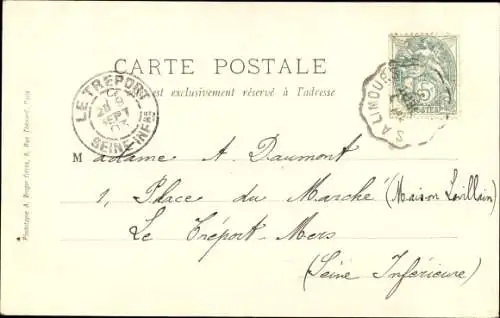 CARTE POSTALE
est exclusivement réservé à l'adresse
LE TREPORT
28 9
SEPT
03
SEINE INFRE
S A LIMOURS
POSTES
Madame A. Daumont
1, Place du Marché (Maison Lavillain)
Le Tréport-Mers
(Seine Inférieure)